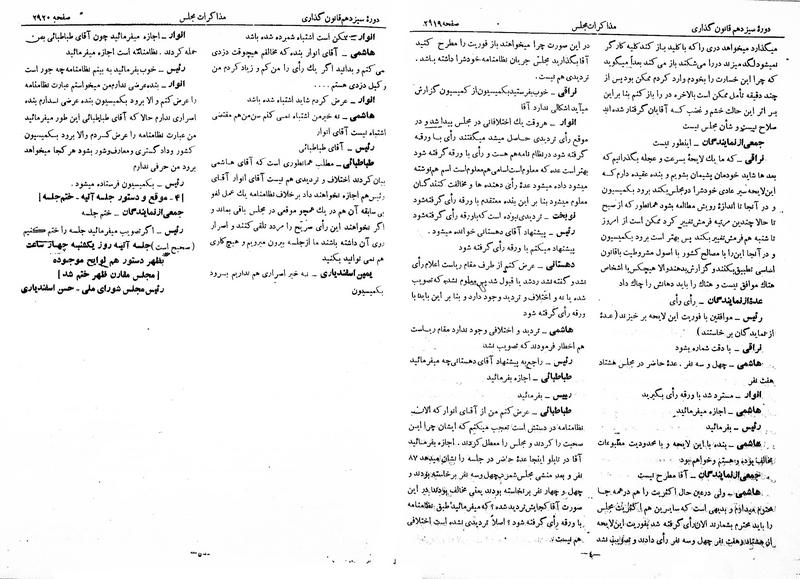 دورهٔ سیزدهم قانون گذاری
مذاکرات مجلس
صفحه ۲۹۱۹
میگذارد میخواهد دری را که با کلید باز کند کلید کار گر
نمیشود لگد میزند در را می‌شکند باز می کند بعد میگوید
که چرا این خسارت را بخودم وارد کردم ممکن بود پس از
چند دقیقه تأمل کنم بالاخره در را باز کنم بنا بر این
پر اثر این حالت خشم و غضب که آقایان گرفتار شده‌اند
صلاح نیست و شأن مجلس نیست
جمعی از نمایندگان ـ اینطور نیست
نراقی ـ که ما یك لایحهٔ بسرعت و عجله بگذرانیم که
بعد ها شاید خودمان پشیمان بشویم و بنده عقیده دارم که
این لایحه سیر عادی خودش را در مجلس بکند برود بکمیسیون
و در آنجا تا اندازهٔ رویش مطالعه بشود همانطور که از صبح
تا حالا چندین مرتبه فرمش تغییر کرد ممکن است از امروز
تا شنبه هم فرمش تغییر بکند پس بهتر است برود بکمیسیون
و در آنجا این را با مصالح کشور با اصول مشروطیت با قانون
اساسی تطبیق بکنند و گزارش بدهند والا هیچکس با اشخاص
هتاك موافق نیست و هتاك را باید دهانش را چاك داد
عدهٔ از نمایندگان ـ رأی رأی
رئیس ـ موافقین با فوریت این لایحه بر خیزند (عدهٔ
از نمایندگان بر خاستند)
نراقی ـ با دقت شماره بشود
هاشمی ـ چهل و سه نفر . عدهٔ حاضر در مجلس هشتاد
هفت نفر
انوار ـ مسترد شد با ورقه رأی بگیرید
هاشمی ـ اجازه میفرمائید
رئیس ـ بفرمائید
هاشمی ـ بنده با این لایحه و با محدودیت مطبوعات
مخالف بوده و هستم و خواهم بود
جمعی از نمایندگان ـ آقا مطرح نیست
هاشمی ـ ولی درعین حال اکثریت را هم در همه جا
محترم میدارم و بدیهی است که سایرین هم اکثریت مجلس
را باید محترم بشمارند الان رأی گرفته شد بفوریت این لایحه
از هشتاد و هفت نفر چهل وسه نفر رأی دادند و تصویب نشد
در این صورت چرا میخواهند باز فوریت را مطرح کنید
آقا بگذارید مجلس جریان نظامنامه خودش را داشته باشد .
تردیدی هم نیست.
نراقی ـ خوب بفرستید بکمیسیون از کمیسیون گزارش
میآید اشکالی ندارد آقا
انوار ـ هروقت یك اختلافی در مجلس پیدا شد و در
موقع رأی تردیدی حاصل میشد میگفتند رأی با ورقه
گرفته شود در نظام نامه هم هست و رأی با ورقه گرفته شود
بهتر است عده که معلوم است اسامی هم معلوم است اسم هم نوشته
میشود داده میشود عدهٔ رأی دهنده ها و مخالفت کنندگان
معلوم میشود بنا بر این بنده معتقدم با ورقه رأی گرفته شود
نوبخت ـ تردیدی بوده است که با ورقه رأی گرفته شود
رئیس ـ پیشنهاد آقای دشتانی خوانده میشود .
پیشنهاد میکنم با ورقه رأی گرفته شود
دهستانی ـ عرض کنم از طرف مقام ریاست اعلام رأی
نشد و گفته نشد رد شد یا قبول شد پس معلوم نشد که تصویب
شده یا نه و اختلاف و تردید وجود دارد و بنا بر این باید با
ورقه رأی گرفته شود
هاشمی ـ تردید و اختلافی وجود ندارد مقام ریاست
هم اخطار فرمودند که تصویب نشد
رئیس ـ راجع به پیشنهاد آقای دهستانی چه میفرمائید
طباطبائی ـ اجازه بفرمائید
رئیس ـ بفرمائید
طباطبائی ـ عرض کنم من از آقای انوار که الان
نظامنامه در دستش است تعجب میکنم که ایشان چرا این
صحبت را کردند و مجلس را معطل کردند . اجازه بفرمائید
آقا در تابلو اینجا عدهٔ حاضر در جلسه را نشان میدهد ۸۷
نفر و بعد منشی مجلس شمرد چهل وسه نفر برخاسته بودند و
چهل و چهار نفر برنخاسته بودند یعنی مخالف بودند در این
صورت آقا کجایش تردید شده؟ که میفرمائید طبق نظامنامه
با ورقه رأی گرفته شود؟ اصلاً تردیدی نشده است اختلافی
هم نیست.
ـ ٤ ـ
دورهٔ سیزدهم قانون گذاری
مذاکرات مجلس
صفحه ۲۹۲۰
انوار ـ ممکن است اشتباه شمرده شده باشد
هاشمی ـ آقای انوار بنده که مخالفم هیچوقت دزدی
می کنم و بدانید اگر یك رأی را من کم و زیاد کردم من
رکیل دزدی هستم....
انوار ـ عرض کردم شاید اشتباه شده باشد
هاشمی ـ نه خیر من اشتباه نمی کنم سن من هم مقتضی
اشتباه نیست آقای انوار
رئیس ـ آقای طباطبائی
طباطبائی ـ مطلب همانطوری است که آقای هاشمی
بیان کردند اختلاف و تردیدی هم نیست آقای انوار آقای
رئیس هم اجازه نخواهند داد برخلاف نظامنامه یك عمل لغو
بی سابقه آن هم در یك همچو موقعی در مجلس باقی بماند و
اگر نخواهند این رأی صریح را مردد تلقی کنند و اصرار
روی آن داشته باشند ما از جلسه بیرون میرویم و هیچکاری
هم نمی توانید بکنید
یمین اسفندیاری ـ نه خیر اصراری هم نداریم برود
بکمیسیون
انوار ـ اجازه میفرمائید چون آقای طباطبائی بمن
حمله کردند . نظامنامه است اجازه میفرمائید
رئیس ـ خوب بفرمائید به بینم نظامنامه چه جور است
انوار ـ بنده عرضی ندارم من میخواستم عبارت نظامنامه
را عرض کنم و الا برود بکمیسیون بنده عرضی ندارم بنده
اصراری ندارم حالا که آقای طباطبائی این طور میفرمائید
من عبارت نظامنامه را عرض کردم والا برود بکمیسیون
کشور و دادگستری و معارف و شور بشود هر کجا میخواهد
برود من حرفی ندارم
رئیس ـ بکمیسیون فرستاده میشود.
[۴ ـ موقع و دستور جلسه آتیه ـ ختم جلسه]
جمعی از نمایندگان ـ ختم جلسه
رئیس ـ اگر تصویب میفرمائید جلسه را ختم میکنیم
(صحیح است) جلسه آتیه روز یکشنبه چهار ساعت
بظهر دستور هم لوایح موجوده
[مجلس مقارن ظهر ختم شد]
رئیس مجلس شورای ملی ـ حسن اسفندیاری
ـ ٥ ـ